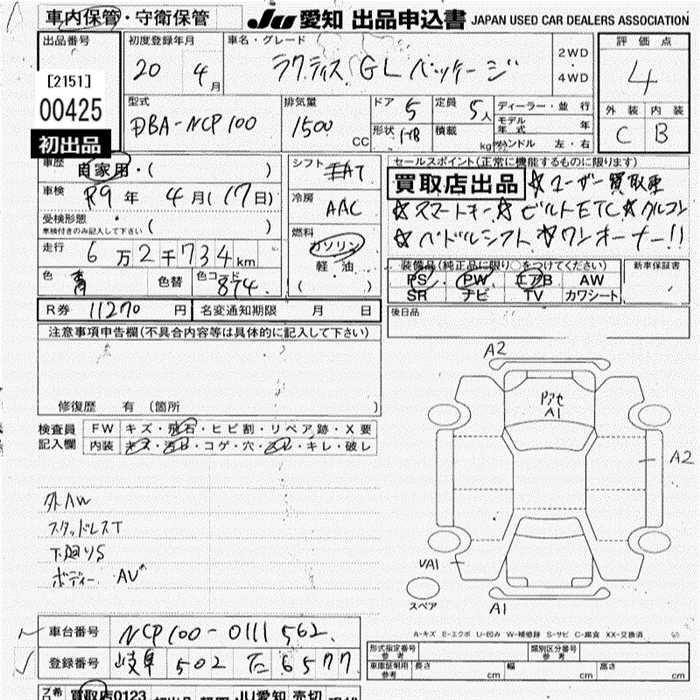 車内保管・守衛保管 JU 愛知 出品申込書 JAPAN USED CAR DEALERS ASSOCIATION
出品番号 初度登録年月 車名・グレード 2WD・4WD 評価点
[2151] 20 4月 ラクティス GL パッケージ 4
00425 型式 排気量 ドア 5 定員 5人 ディーラー・並行 外装 内装
DBA-NCP100 1500 CC 形状 積載 kg モデル年式 年 ハンドル 左・右 C B
初出品
車歴 自家用・( ) シフト AT セールスポイント(正常に機能するものに限ります)
車検 R9年 4月(17日) 冷房 AAC 買取店出品 ☆ユーザー買取車
受検形態 車検付きのみ記入して下さい ( ) 燃料 ☆スマートキー ☆ビルトETC
走行 6万2千734km ガソリン ☆パドルシフト ☆ワンオーナー!!
色 青 色替 色コード 874 軽油 ( ) 装備品(純正品に限り○をつけてください) 新車保証書
PS PW エアB AW
SR ナビ TV カワシート
R券 11270円 名変通知期限 月 日 後日品
注意事項申告欄(不具合内容等は具体的に記入して下さい)
修復歴 有 (箇所 )
検査員記入欄 FW キズ・飛石・ヒビ割・リペア跡・X要
内装 キズ・汚レ・コゲ・穴・スレ・キレ・破レ
外AW
スタッドレスT
下廻りS
ボディー AV
A2
A1
A2
A1
スペア
A-キズ E-エクボ U-凹み W-補修跡 S-サビ C-腐食 XX-交換済
車台番号 NCP100-0111562
登録番号 岐阜 502 6577
形式指定番号 参考 類別区分番号 参考
車庫証明用 参考 長さ cm 幅 cm 高さ cm
買取店0123 JU愛知 売切